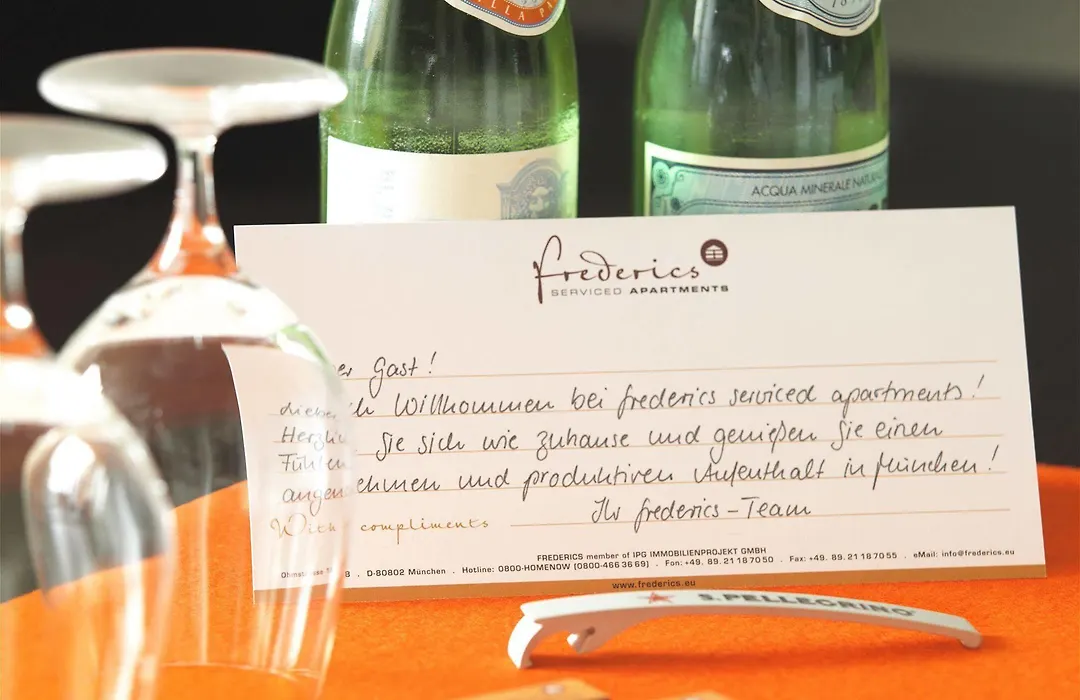 LLA PA
ACQUA MINERALE NATUR
frederics
SERVICED APARTMENTS
Lieber Gast!
Herzlich Willkommen bei frederics serviced apartments!
Fühlen Sie sich wie zuhause und genießen Sie einen
angenehmen und produktiven Aufenthalt in München!
With compliments
Ihr frederics-Team
FREDERICS member of IPG IMMOBILIENPROJEKT GMBH
Ohmstrasse 8 . D-80802 München . Hotline: 0800-HOMENOW (0800-466 36 69) . Fon: +49. 89. 21 18 70 50 . Fax: +49. 89. 21 18 70 55 . eMail: info@frederics.eu
www.frederics.eu
S.PELLEGRINO